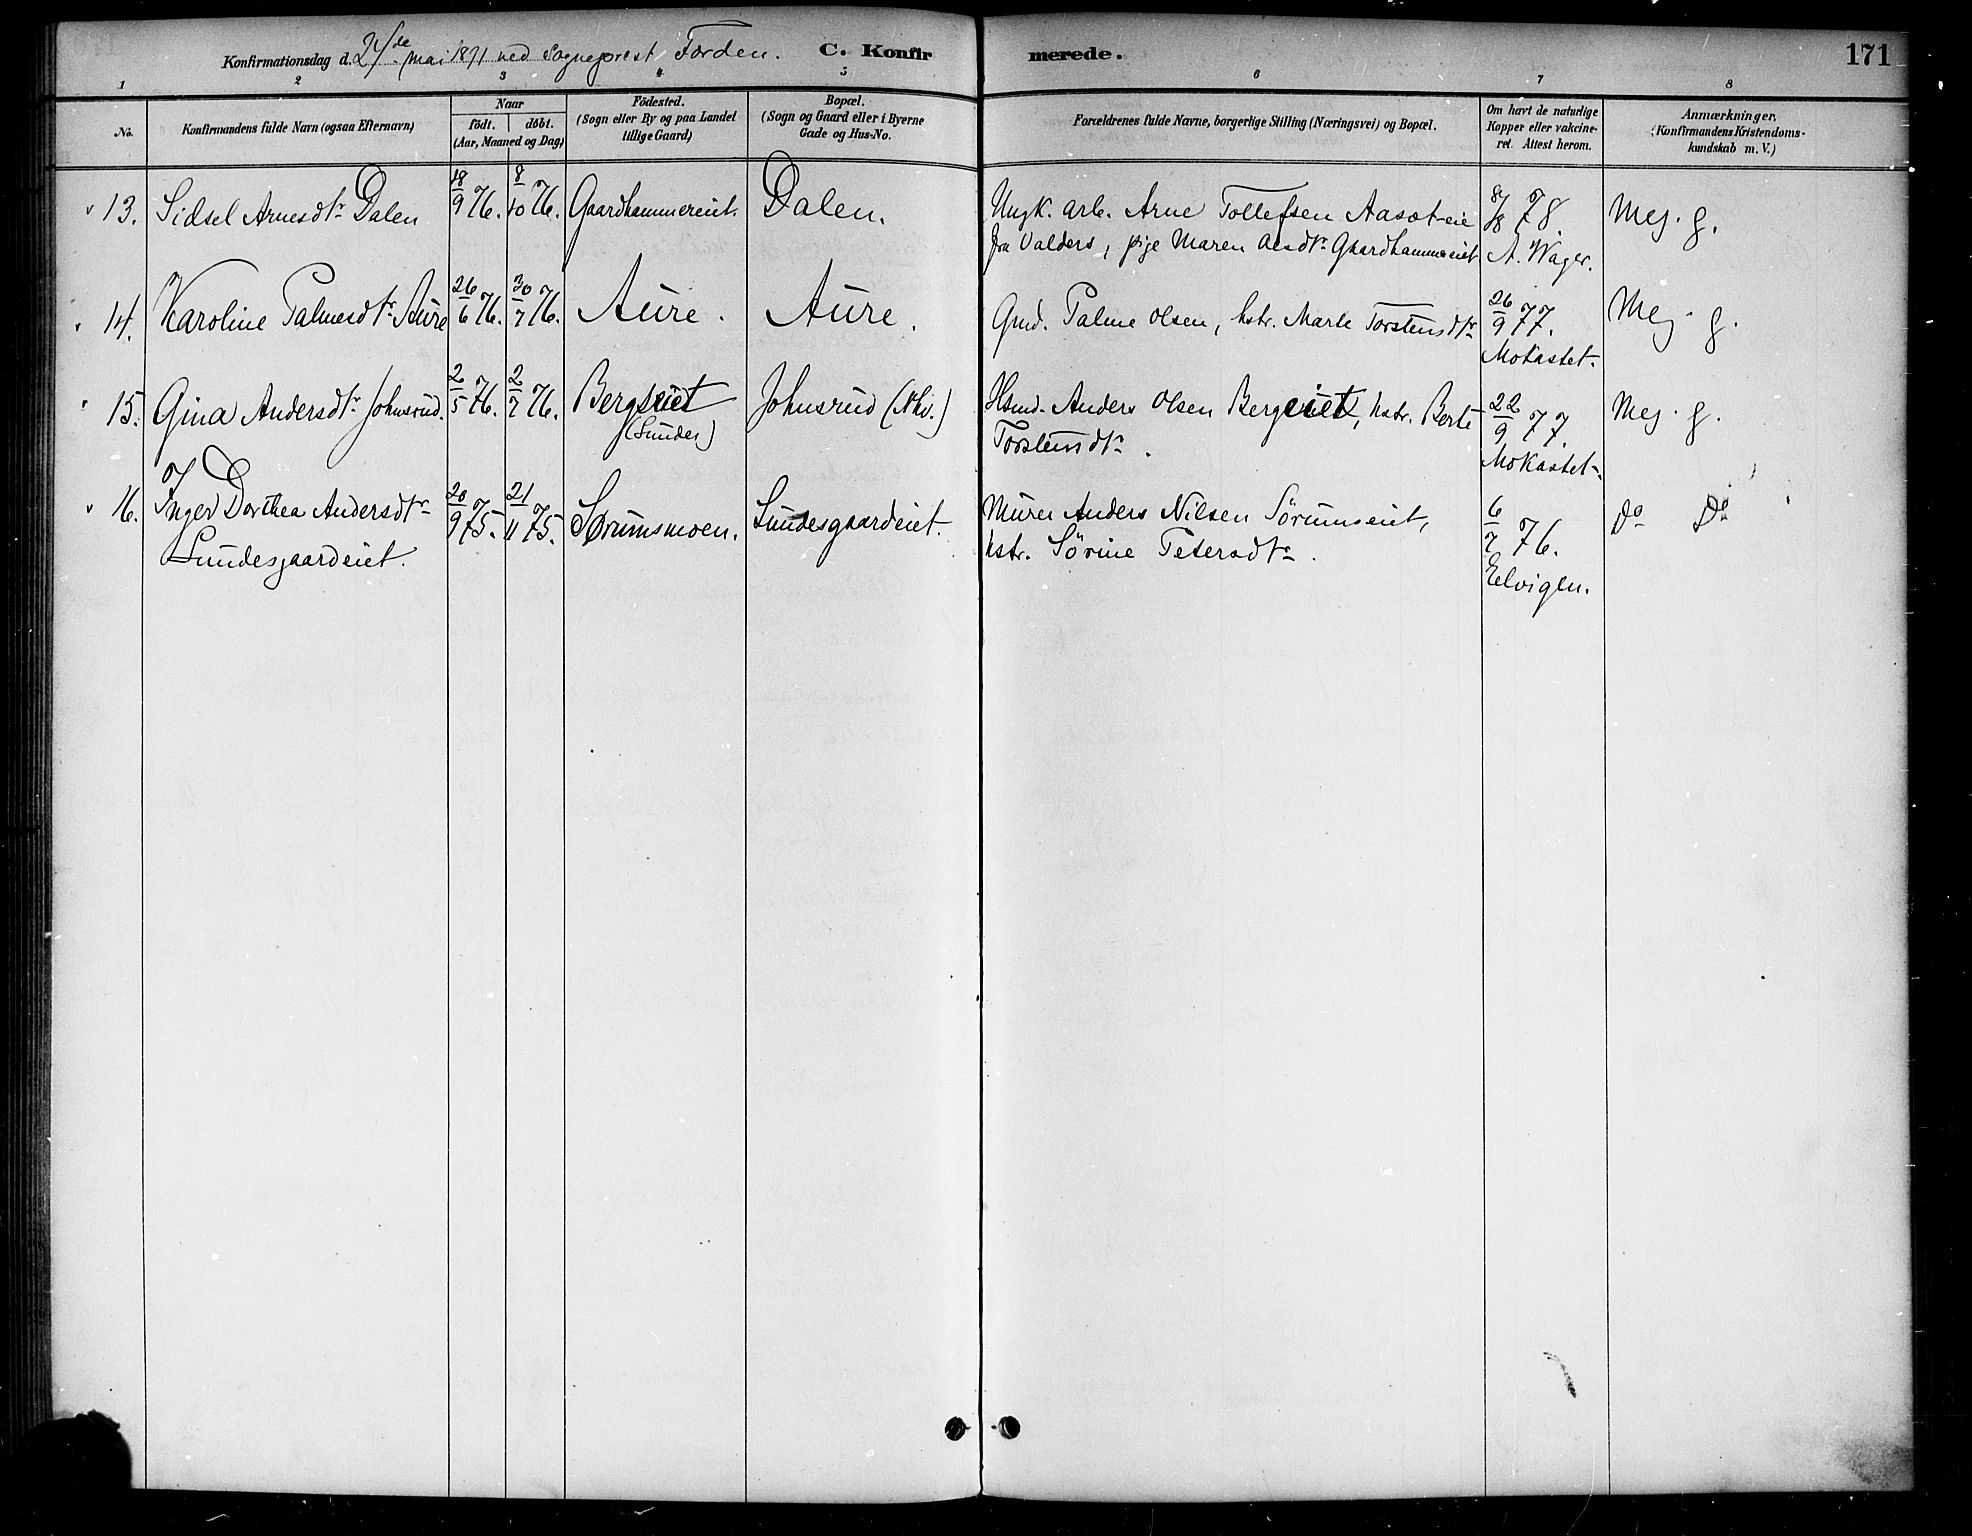 Konfirmationsdag d. 24de mai 1891 ved Sogneprest Förden. C. Konfirmerede. 171
1 2 3 4 5 6 7 8
No.
Konfirmandens fulde Navn (ogsaa Efternavn)
Naar
födt. döbt.
(Aar, Maaned og Dag)
Födested.
(Sogn eller By og paa Landet
tillige Gaard)
Bopæl.
(Sogn og Gaard eller i Byerne
Gade og Hus-No.
Forældrenes fulde Navne, borgerlige Stilling (Næringsvei) og Bopæl.
Om havt de naturlige
Kopper eller vakcine-
ret. Attest herom.
Anmærkninger.
(Konfirmandens Kristendoms-
kundskab m. V.)
13. Sidsel Arnesdtr Dalen 18/9 76. 8/10 76. Gaardhammereiet. Dalen. Ungk. arb. Arne Tollefsen Aasæt-eie 78. Meg. g.
fra Valders, pige Maren Gaardhammereiet A. Wager.
14. Karoline Palmesdtr Aure 26/6 76. 30/7 76. Aure. Aure. Gmd. Palme Olsen, hstr. Marte Torstensdtr 26/9 77. Meg. g.
Mokastet
15. Gina Andersdtr Johnsrud. 2/5 76. 2/7 76. Bergseiet Johnsrud (Nhv.) Hsmd. Anders Olsen Bergeiet, hstr. Berte 22/9 77. Meg. g.
(Sunder) Torstensdtr. Mokastet
16. Inger Dorthea Andersdtr 20/9 75. 21/11 75. Sørumsmoen. Sundesgaardeiet. Murer Anders Nilsen Sörumseiet, 6/7 76. Do Do
Sundesgaardeiet. hstr. Sörine Petersdtr. Eelvigen.